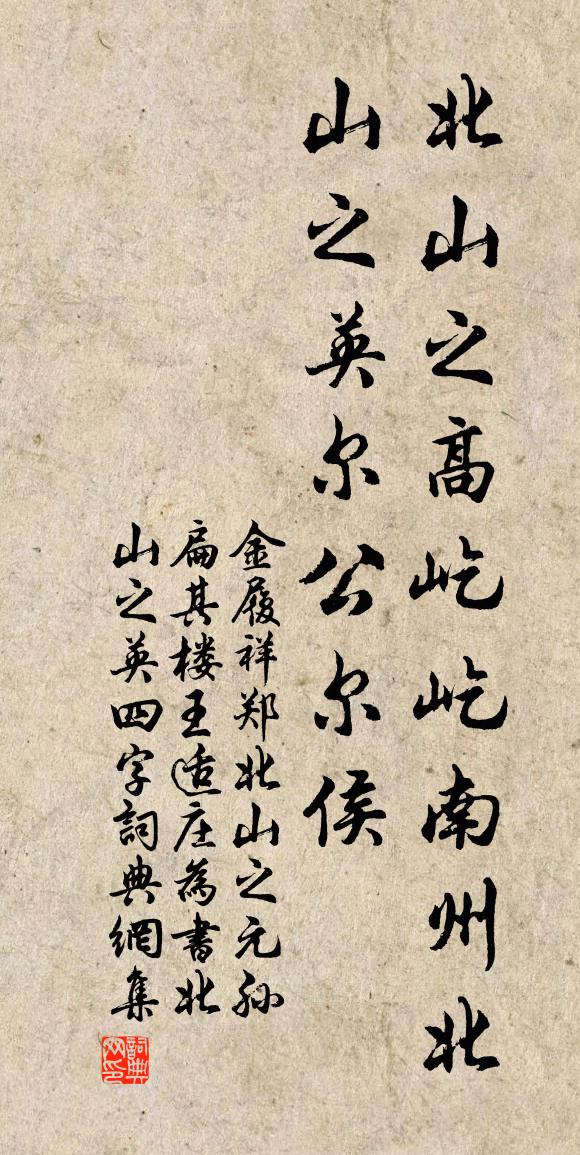 北山之高屹屹南州北
山之英尔公尔侯
金履祥郑北山之元孙
扁其楼王适庄為書北
山之英四字詞典網集
詞典网印